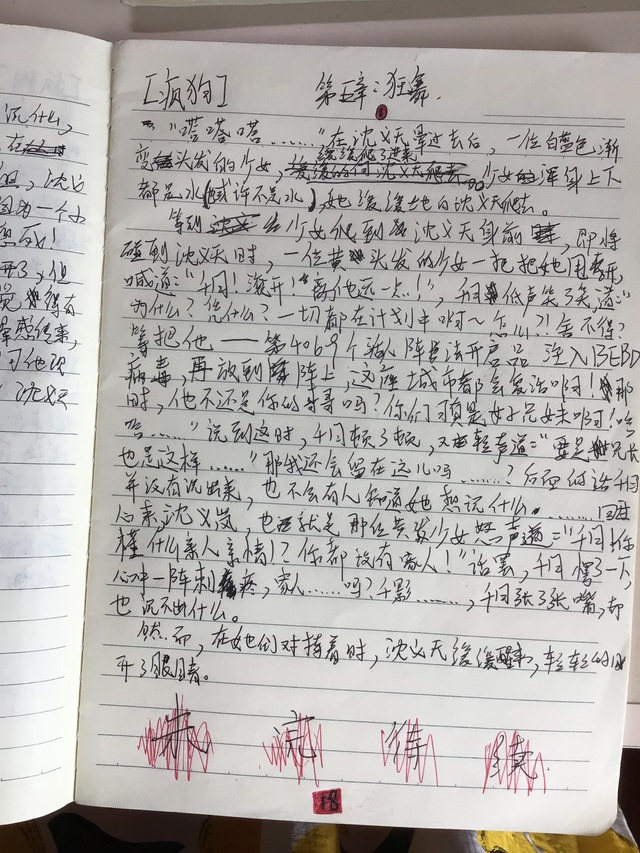 [疯狗] 第五章:狂舞.
"嗒嗒嗒……"在沈义天晕过去后,一位白蓝色渐
变头发的少女,缓缓爬了进来。少女浑身上下
都是水(或许不是水),她缓缓地向沈义天爬去。
等到少女爬到沈义天身前,即将
碰到沈义天时,一位黄头发的少女一把把她甩开,
喊道:"千闩!滚开!离他远一点!",千闩低声笑了笑,道:"
为什么?凭什么?一切都在计划中啊~怎么?!舍不得?
等把他——第4069个输入阵法开启品 注入BEBD
病毒,再放到阵上,这座城市都会复活啊!那
时,他不还是你的哥哥吗?你们可真是好兄妹啊!哈
哈……"说到这时,千闩顿了顿,又轻声道:"要是兄长
也是这样……"那我还会留在这儿吗……?后面的话千闩
并没有说出来,也不会有人知道她想说什么。……回过
心来沈义岚,也就是那位黄发少女怒声道:"千闩!你
懂什么亲人亲情!?你都没有家人!"话罢,千闩愣了一下
心中一阵刺疼,家人……吗?千影……,千闩张了张嘴,却
也说不出什么。
然而,在她们对持着时,沈义天缓缓醒来,轻轻的
开了眼睛。
未 完 待 续
18
沉什么,
在
沈义
因为一个小
但
觉 得有
沈天